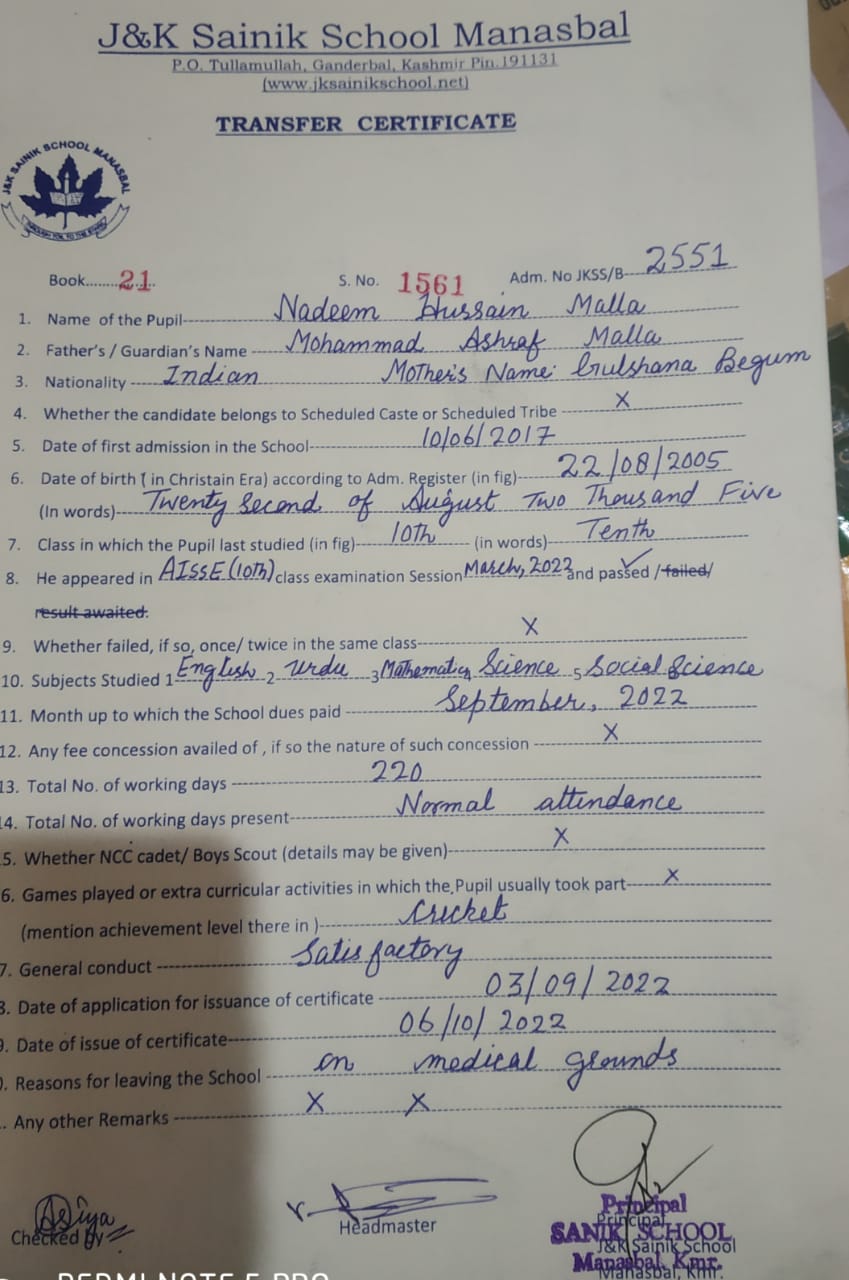 J&K Sainik School Manasbal
P.O. Tullamullah, Ganderbal, Kashmir Pin.191131
(www.jksainikschool.net)
TRANSFER CERTIFICATE
J&K SAINIK SCHOOL MANASBAL
Book........21..... S. No. 1561 Adm. No JKSS/B----2551
1. Name of the Pupil---Nadeem Hussain Malla
2. Father's / Guardian's Name ---Mohammad Ashraf Malla
3. Nationality ---Indian Mother's Name: Gulshana Begum
4. Whether the candidate belongs to Scheduled Caste or Scheduled Tribe ---X
5. Date of first admission in the School---10/06/2017
6. Date of birth ( in Christain Era) according to Adm. Register (in fig)---22/08/2005
(In words)---Twenty Second of August Two Thousand Five
7. Class in which the Pupil last studied (in fig)---10th---(in words)---Tenth
8. He appeared in AISSE (10th) class examination Session March, 2022 and passed / failed/
result awaited.
9. Whether failed, if so, once/ twice in the same class---X
10. Subjects Studied 1 English 2 Urdu 3 Mathematics Science 5 Social Science
11. Month up to which the School dues paid ---September, 2022
12. Any fee concession availed of , if so the nature of such concession ---X
13. Total No. of working days ---220
4. Total No. of working days present---Normal attendance
5. Whether NCC cadet/ Boys Scout (details may be given)---X
6. Games played or extra curricular activities in which the Pupil usually took part---X
(mention achievement level there in )---Cricket
7. General conduct ---Satisfactory
8. Date of application for issuance of certificate ---03/09/2022
9. Date of issue of certificate---06/10/2022
). Reasons for leaving the School ---on medical grounds
. Any other Remarks ---X X
Asiya
Checked By
Headmaster
Principal
Principal
SANIK SCHOOL
J&K Sainik School
Manasbal, Kmr.
Manasbal, Kmr.
REDMI NOTE 5 PRO